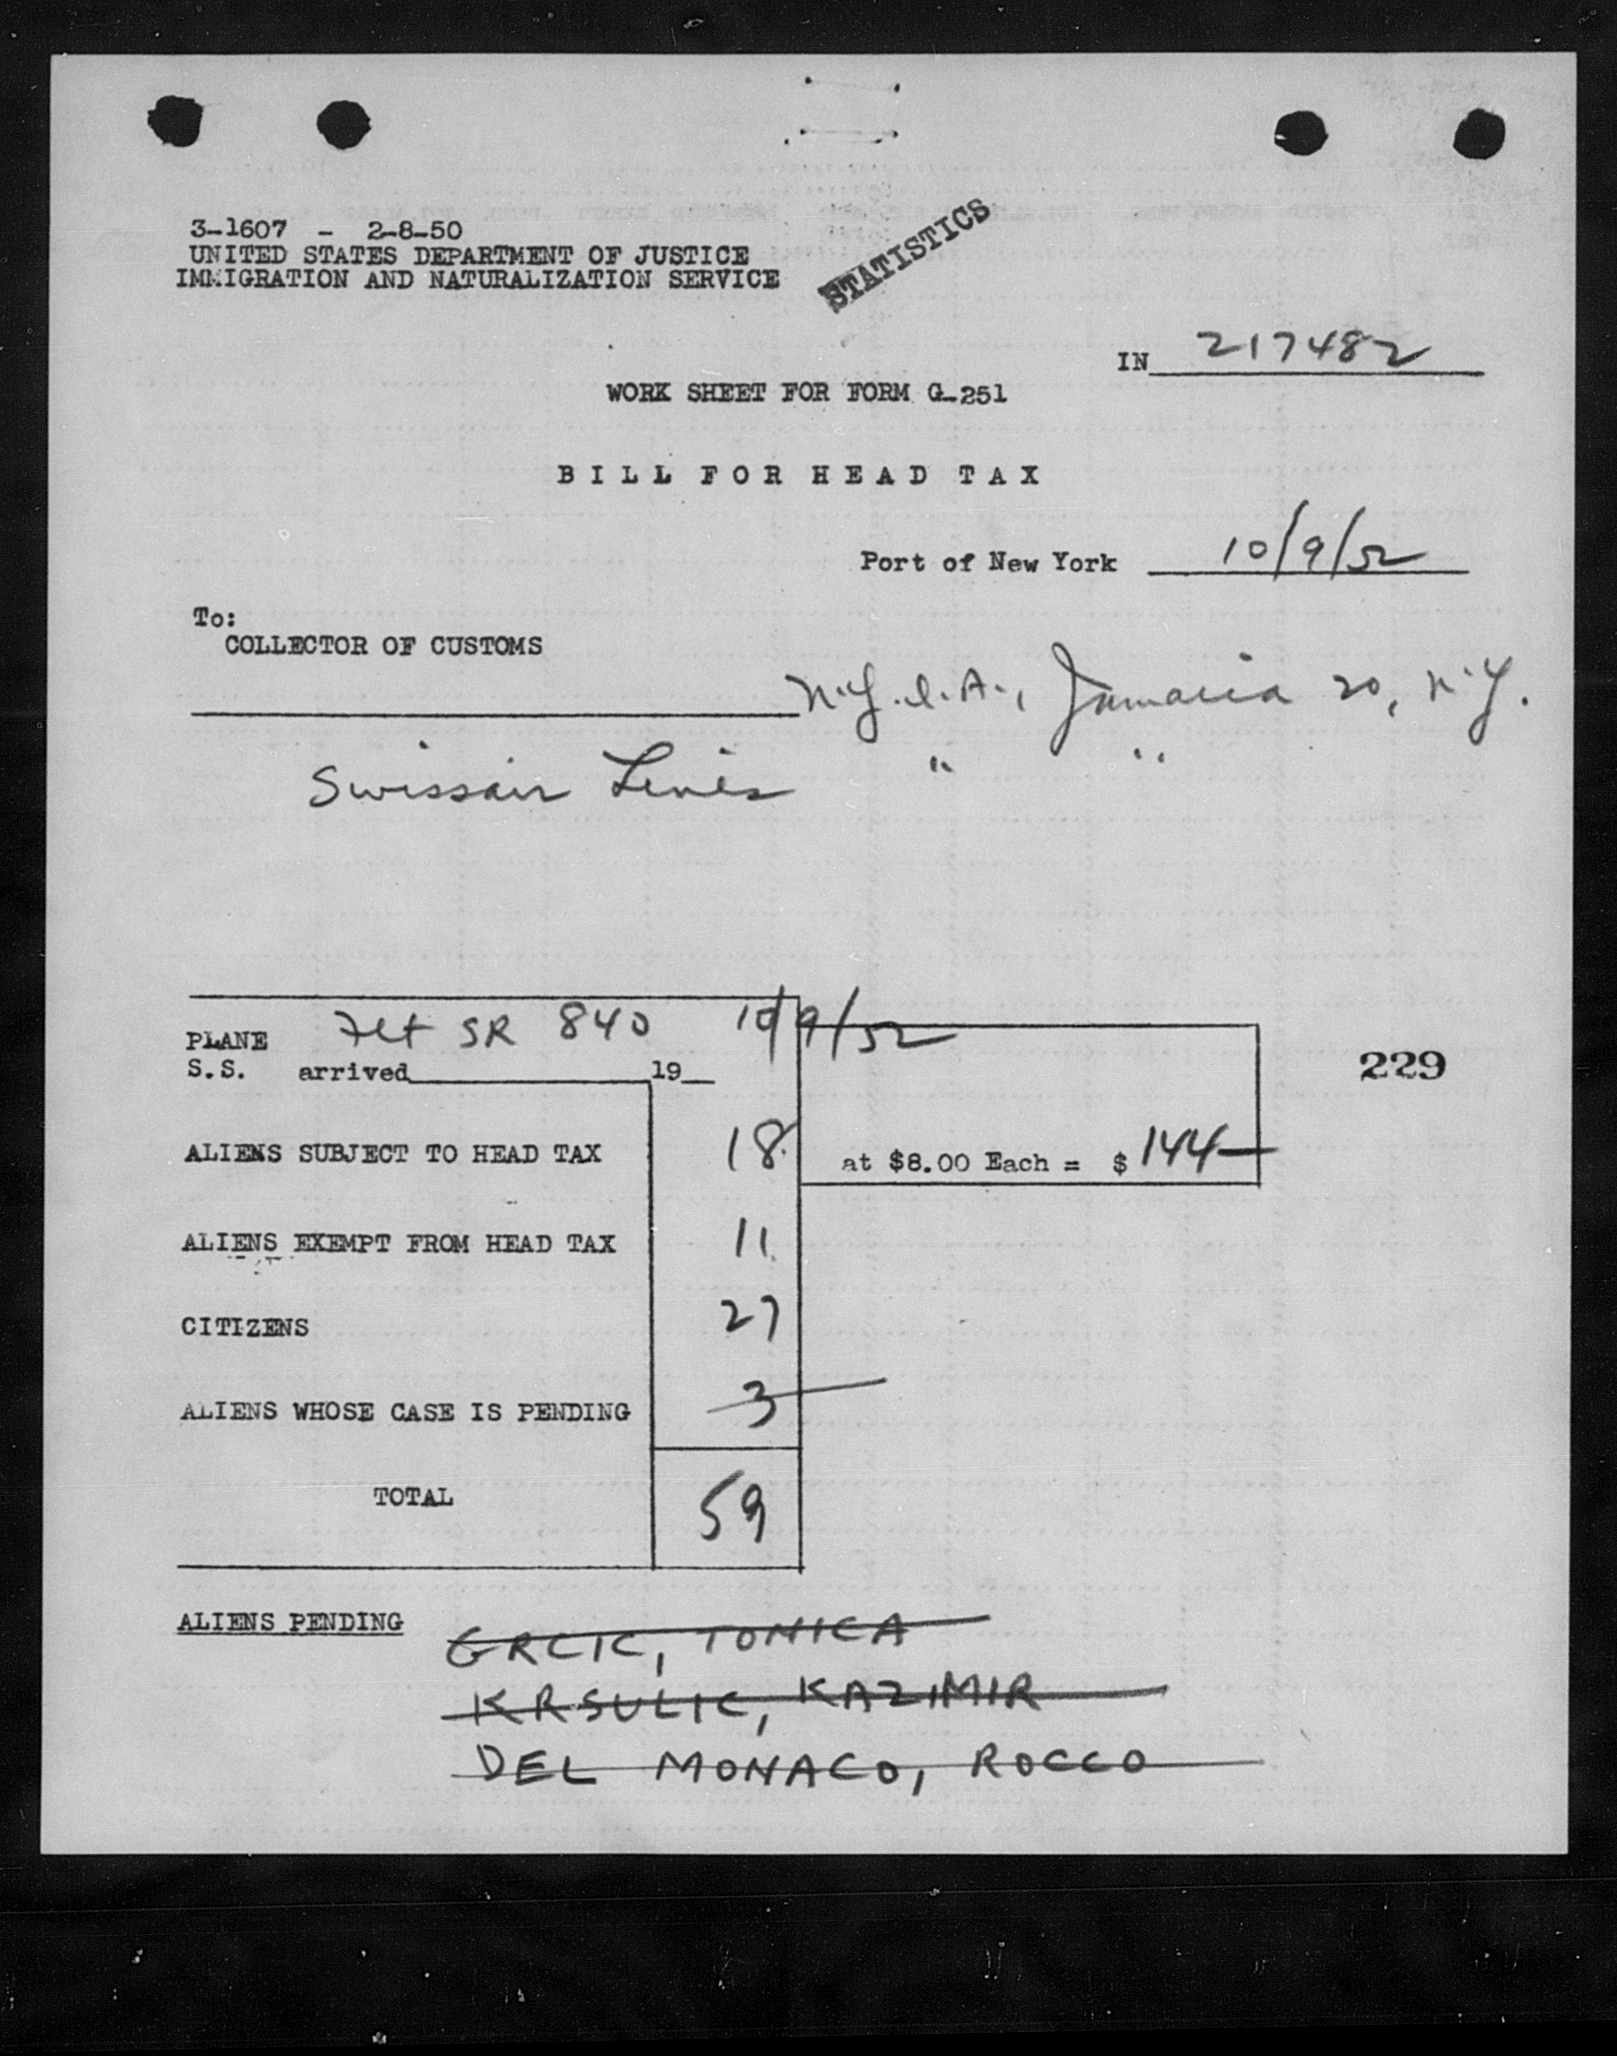 3-1607 - 2-8-50
UNITED STATES DEPARTMENT OF JUSTICE
IMMIGRATION AND NATURALIZATION SERVICE
STATISTICS
IN 217482
WORK SHEET FOR FORM G-251
BILL FOR HEAD TAX
Port of New York 10/9/52
To:
COLLECTOR OF CUSTOMS
N.Y.I.A., Jamaica 20, N.Y.
Swissair Lines " "
PLANE Flt SR 840 10/9/52
S.S. arrived 19
229
ALIENS SUBJECT TO HEAD TAX 18 at $8.00 Each = $144—
ALIENS EXEMPT FROM HEAD TAX 11
CITIZENS 27
ALIENS WHOSE CASE IS PENDING 3
TOTAL 59
ALIENS PENDING GRCIC, TONICA
KRSULIC, KAZIMIR
DEL MONACO, ROCCO